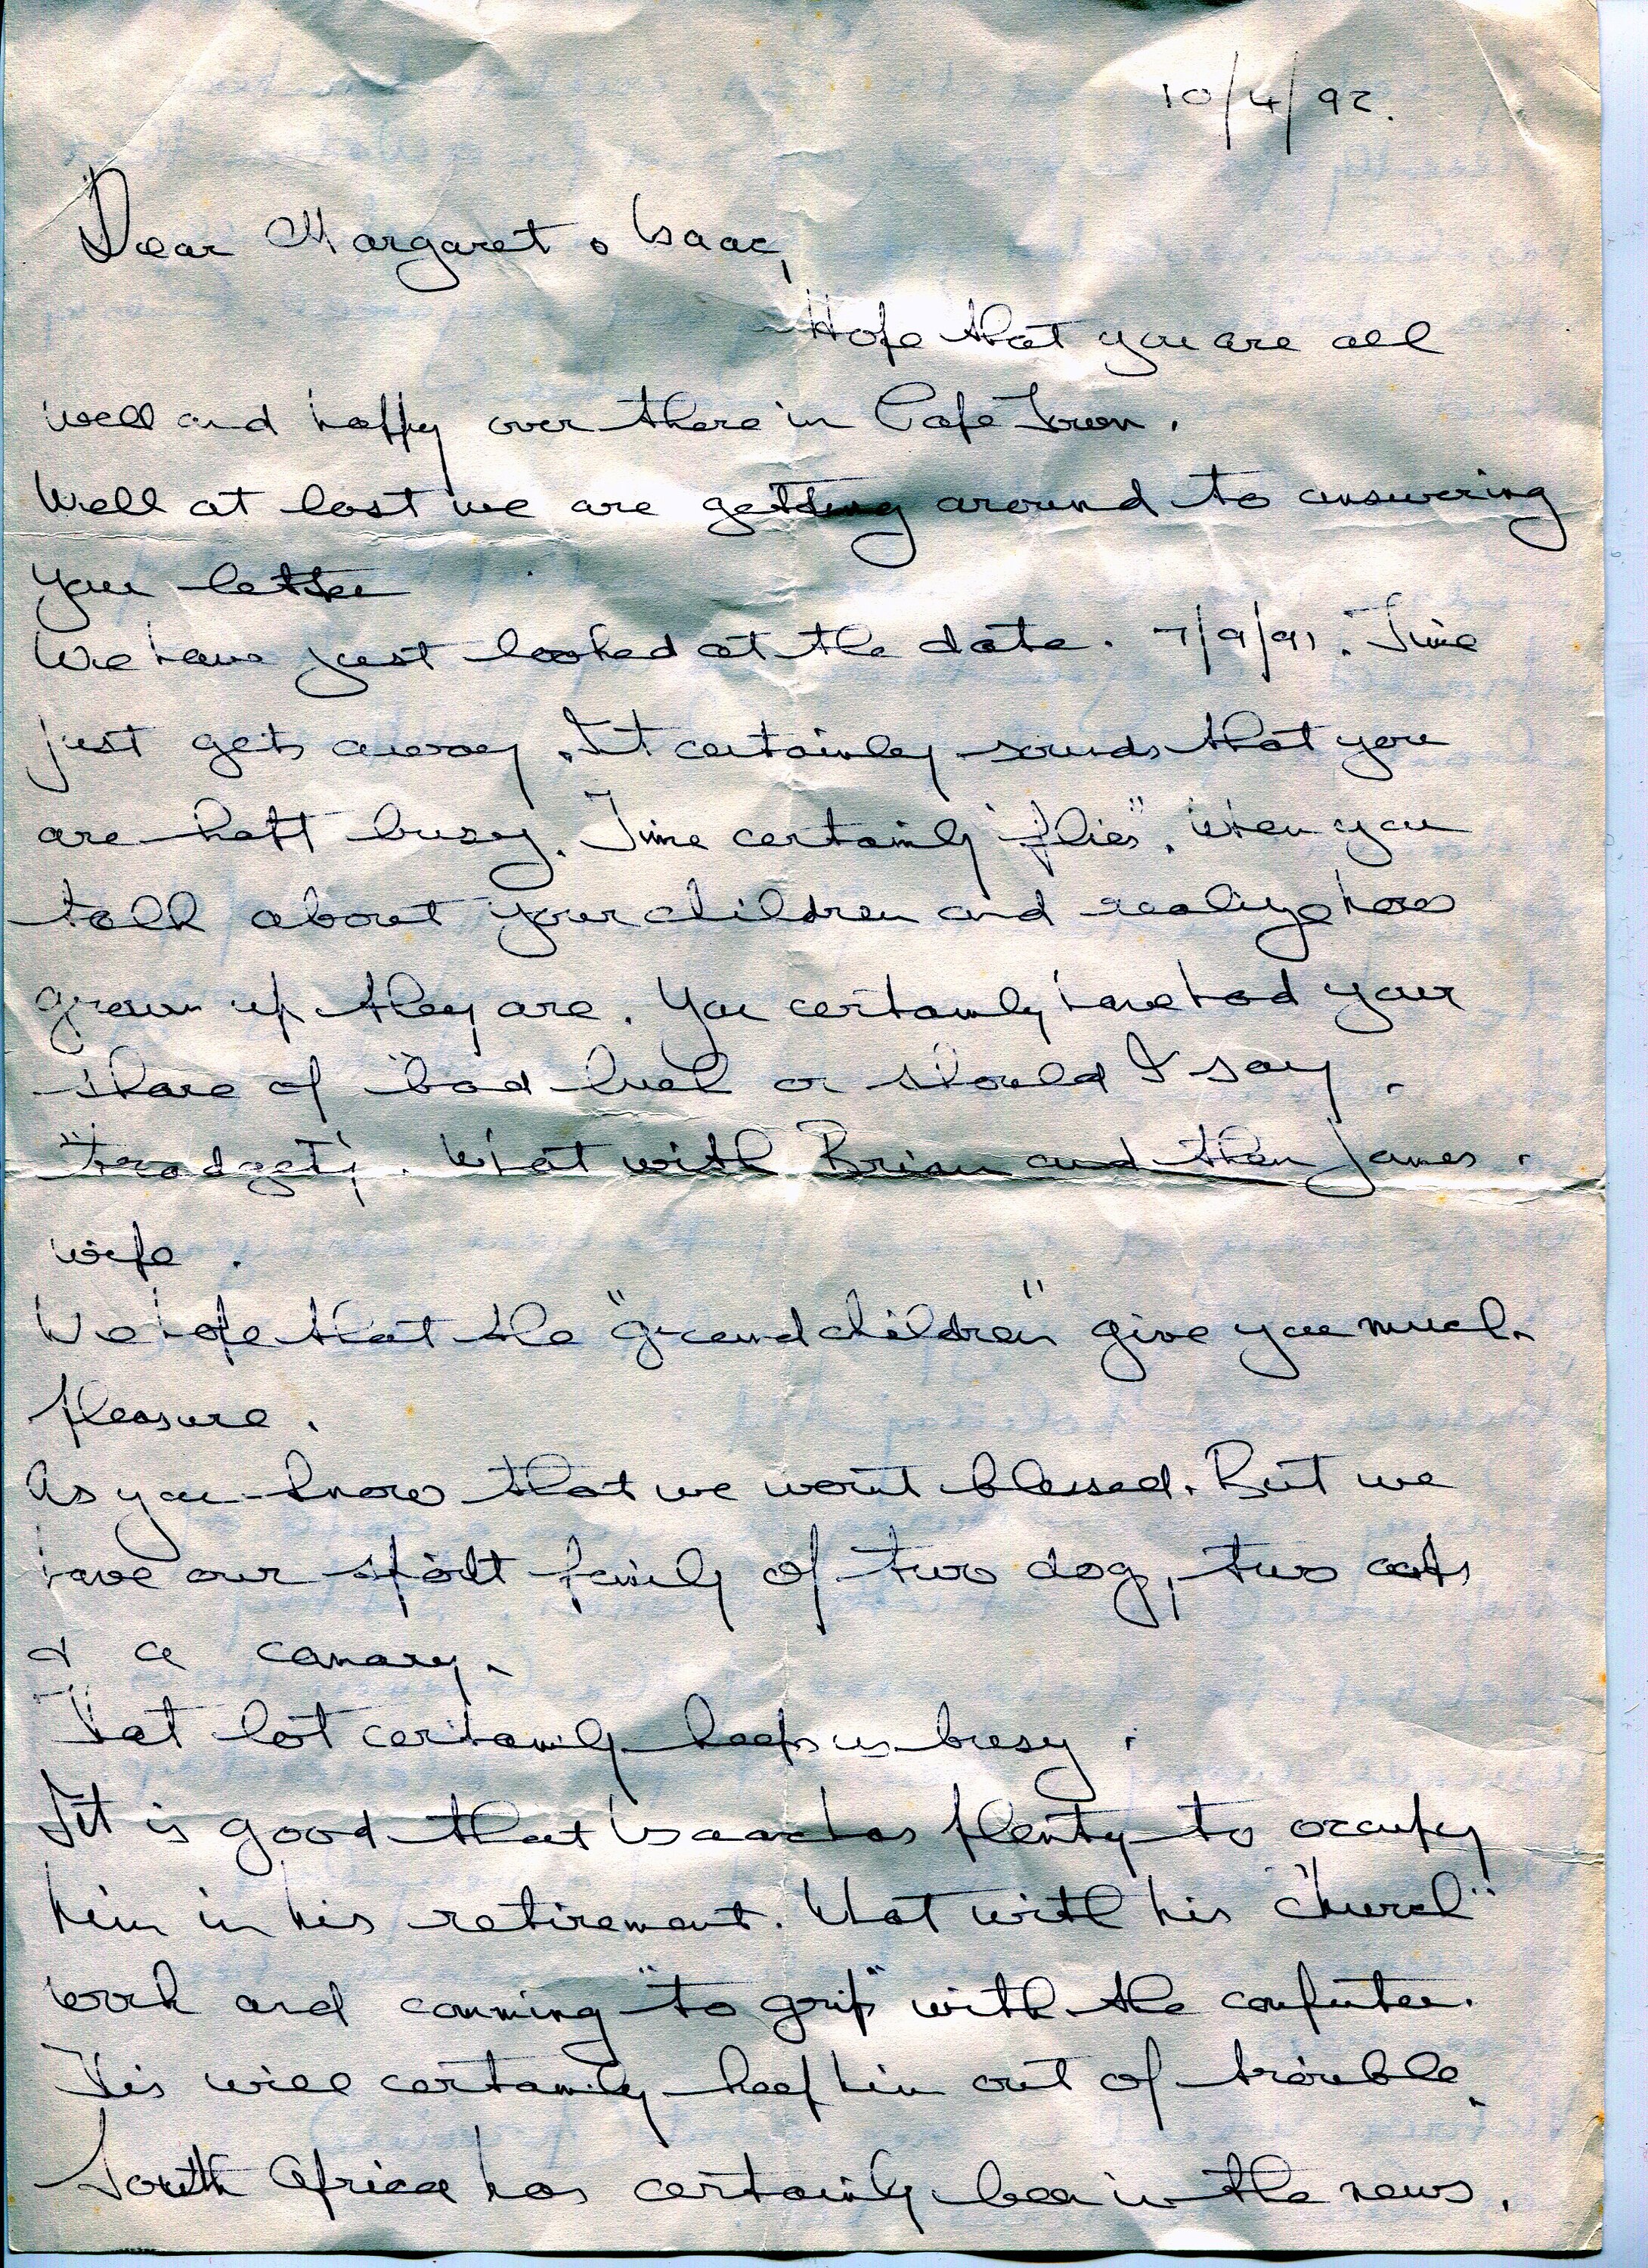 10/4/92.
Dear Margaret & Isaac,
Hope that you are all
well and happy over there in Cape Town.
Well at last we are getting around to answering
your letter
We have just looked at the date. 7/9/91. Time
just gets away. It certainly sounds that you
are kept busy. Time certainly "flies". When you
talk about your children and realize how
grown up they are. You certainly have had your
share of "bad luck or should I say.
"tradgety. What with Brian and then James.
wife.
We hope that the "grandchildren" give you much
pleasure.
As you know that we won't blessed. But we
have our spoilt family of two dog, two cats
& a canary.
That lot certainly keeps us busy.
It is good that Isaac has plenty to occupy
him in his retirement. What with his "church"
work and comming "to grip" with the computer.
This will certainly keep him out of trouble.
South Africa has certainly been in the news.